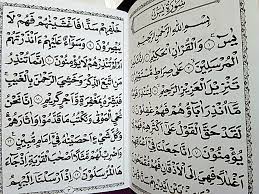 سُورَةُ يٰسٓ
بِسْمِ اللهِ الرَّحْمٰنِ الرَّحِيْمِ
يٰسٓ وَالْقُرْاٰنِ الْحَكِيْمِ
الْمُرْسَلِيْنَ عَلٰى صِرَاطٍ
تَنْزِيْلَ الْعَزِيْزِ الرَّحِيْمِ
مَّآ اُنْذِرَ اٰبَآؤُهُمْ فَهُمْ غٰفِلُوْنَ
لَقَدْ حَقَّ الْقَوْلُ عَلٰٓى
يُؤْمِنُوْنَ اِنَّا جَعَلْنَا فِيْٓ
فَهِيَ اِلَى الْاَذْقَانِ فَهُمْ
خَلْفِهِمْ سَدًّا فَاَغْشَيْنٰهُمْ فَهُمْ لَا
يُبْصِرُوْنَ وَسَوَآءٌ عَلَيْهِمْ ءَاَنْذَرْتَهُمْ
يُؤْمِنُوْنَ اِنَّمَا تُنْذِرُ
مَنِ اتَّبَعَ الذِّكْرَ وَخَشِيَ الرَّحْمٰنَ بِالْغَيْبِ
فَبَشِّرْهُ بِمَغْفِرَةٍ وَّاَجْرٍ كَرِيْمٍ
شَيْءٍ اَحْصَيْنٰهُ فِيْٓ اِمَامٍ مُّبِيْنٍ
وَاضْرِبْ لَهُمْ مَّثَلًا اَصْحٰبَ الْقَرْيَةِ اِذْ جَآءَهَا
الْمُرْسَلُوْنَ اِذْ اَرْسَلْنَآ اِلَيْهِمُ